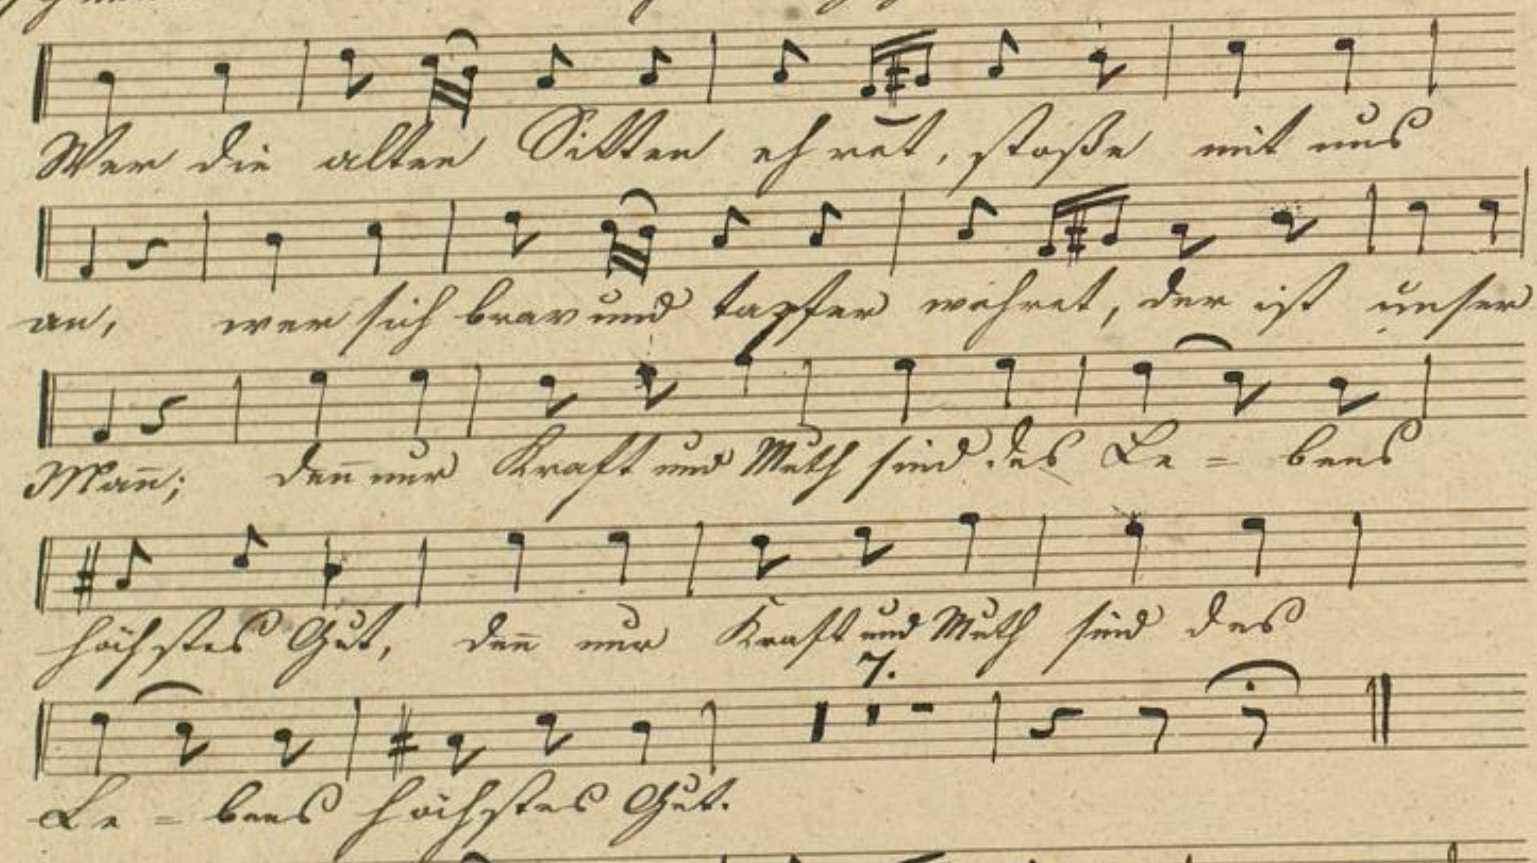 Wer die alten Sitten ehret, stoße mit uns
an, wer sich brav und tapfer wehret, der ist unser
Mañ; deñ nur Kraft und Muth sind des Le = bens
höchstes Gut, deñ nur Kraft und Muth sind des
7.
Le = bens höchstes Gut.